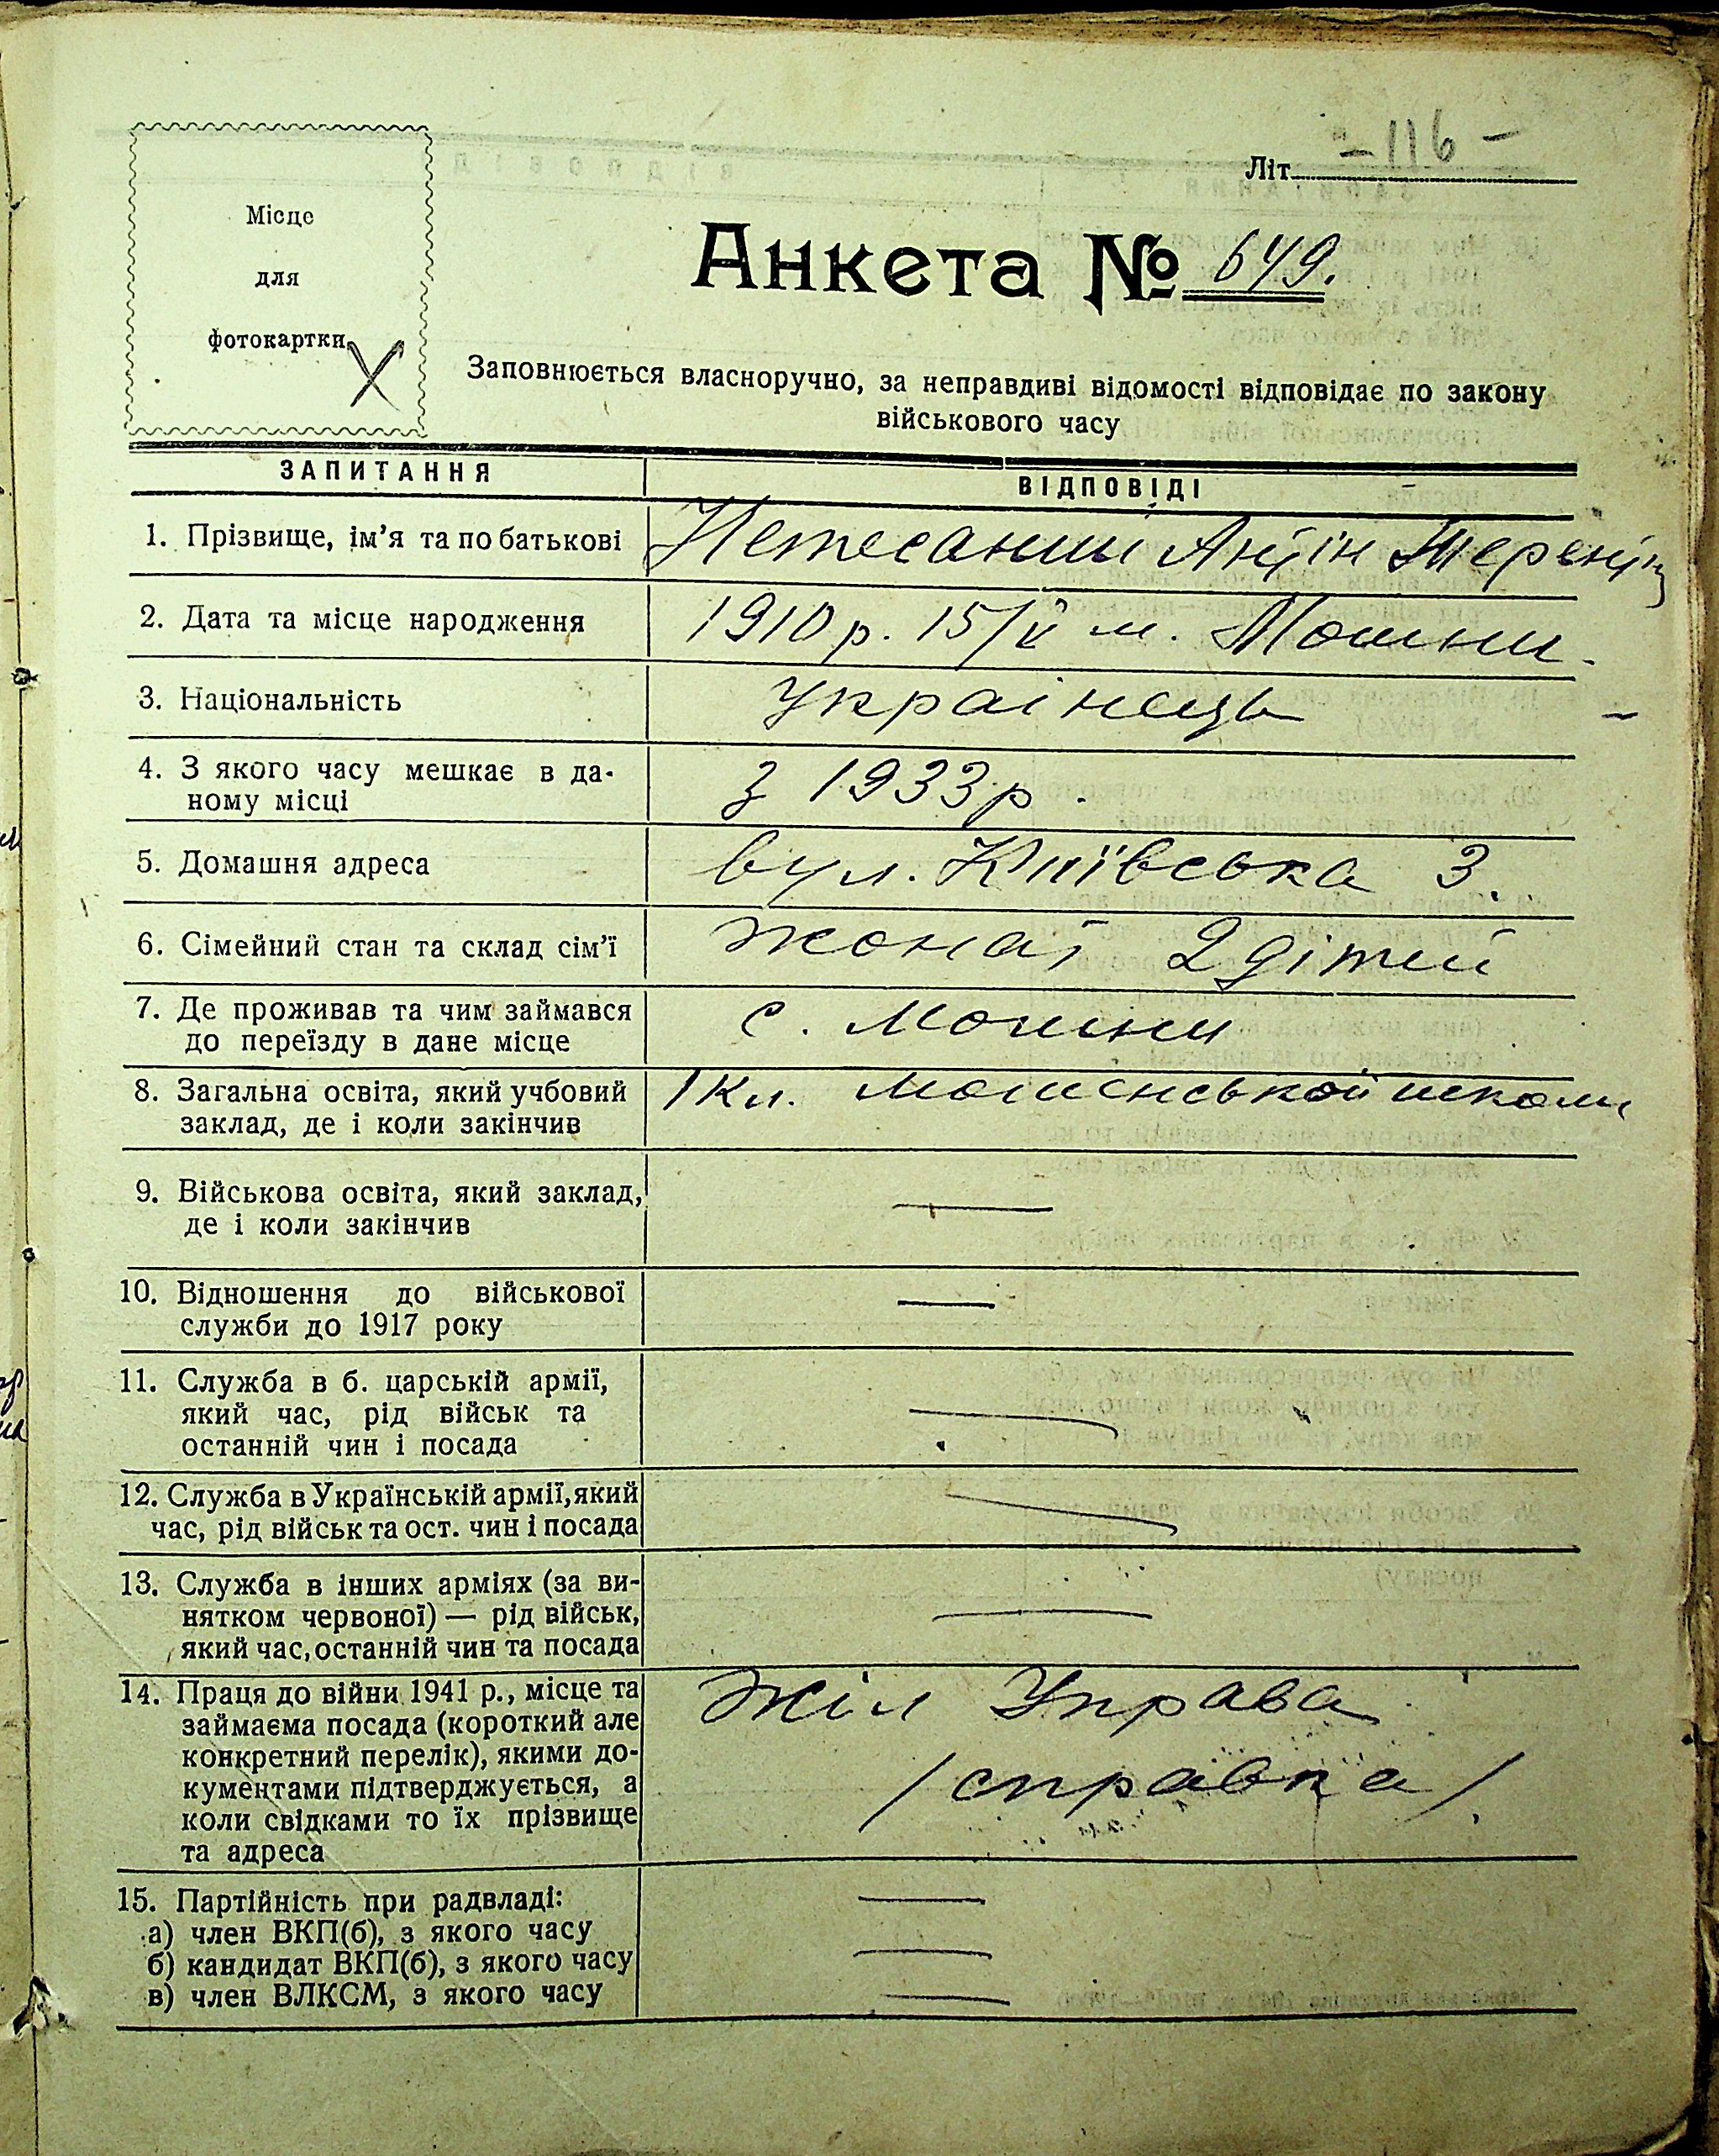 Місце
для
фотокартки
Літ. -116-
Анкета № 649.
Заповнюється власноручно, за неправдиві відомості відповідає по закону
військового часу
ЗАПИТАННЯ ВІДПОВІДІ
1. Прізвище, ім’я та по батькові Нетесаний Антін
2. Дата та місце народження 1910 р. 15/V м. Мошни.
3. Національність Украінець
4. З якого часу мешкає в да-
ному місці з 1933 р.
5. Домашня адреса вул. Київська 3.
6. Сімейний стан та склад сім’ї жонат 2 дітей
7. Де проживав та чим займався
до переїзду в дане місце с. Мошни
8. Загальна освіта, який учбовий
заклад, де і коли закінчив 1 кл. школи
9. Військова освіта, який заклад,
де і коли закінчив —
10. Відношення до військової
служби до 1917 року —
11. Служба в б. царській армії,
який час, рід військ та
останній чин і посада —
12. Служба в Українській армії, який
час, рід військ та ост. чин і посада —
13. Служба в інших арміях (за ви-
нятком червоної) — рід військ,
який час, останній чин та посада —
14. Праця до війни 1941 р., місце та
займаєма посада (короткий але
конкретний перелік), якими до-
кументами підтверджується, а
коли свідками то їх прізвище
та адреса
Жіл Управа
/справка/.
15. Партійність при радвладі: —
а) член ВКП(б), з якого часу
б) кандидат ВКП(б), з якого часу —
в) член ВЛКСМ, з якого часу —